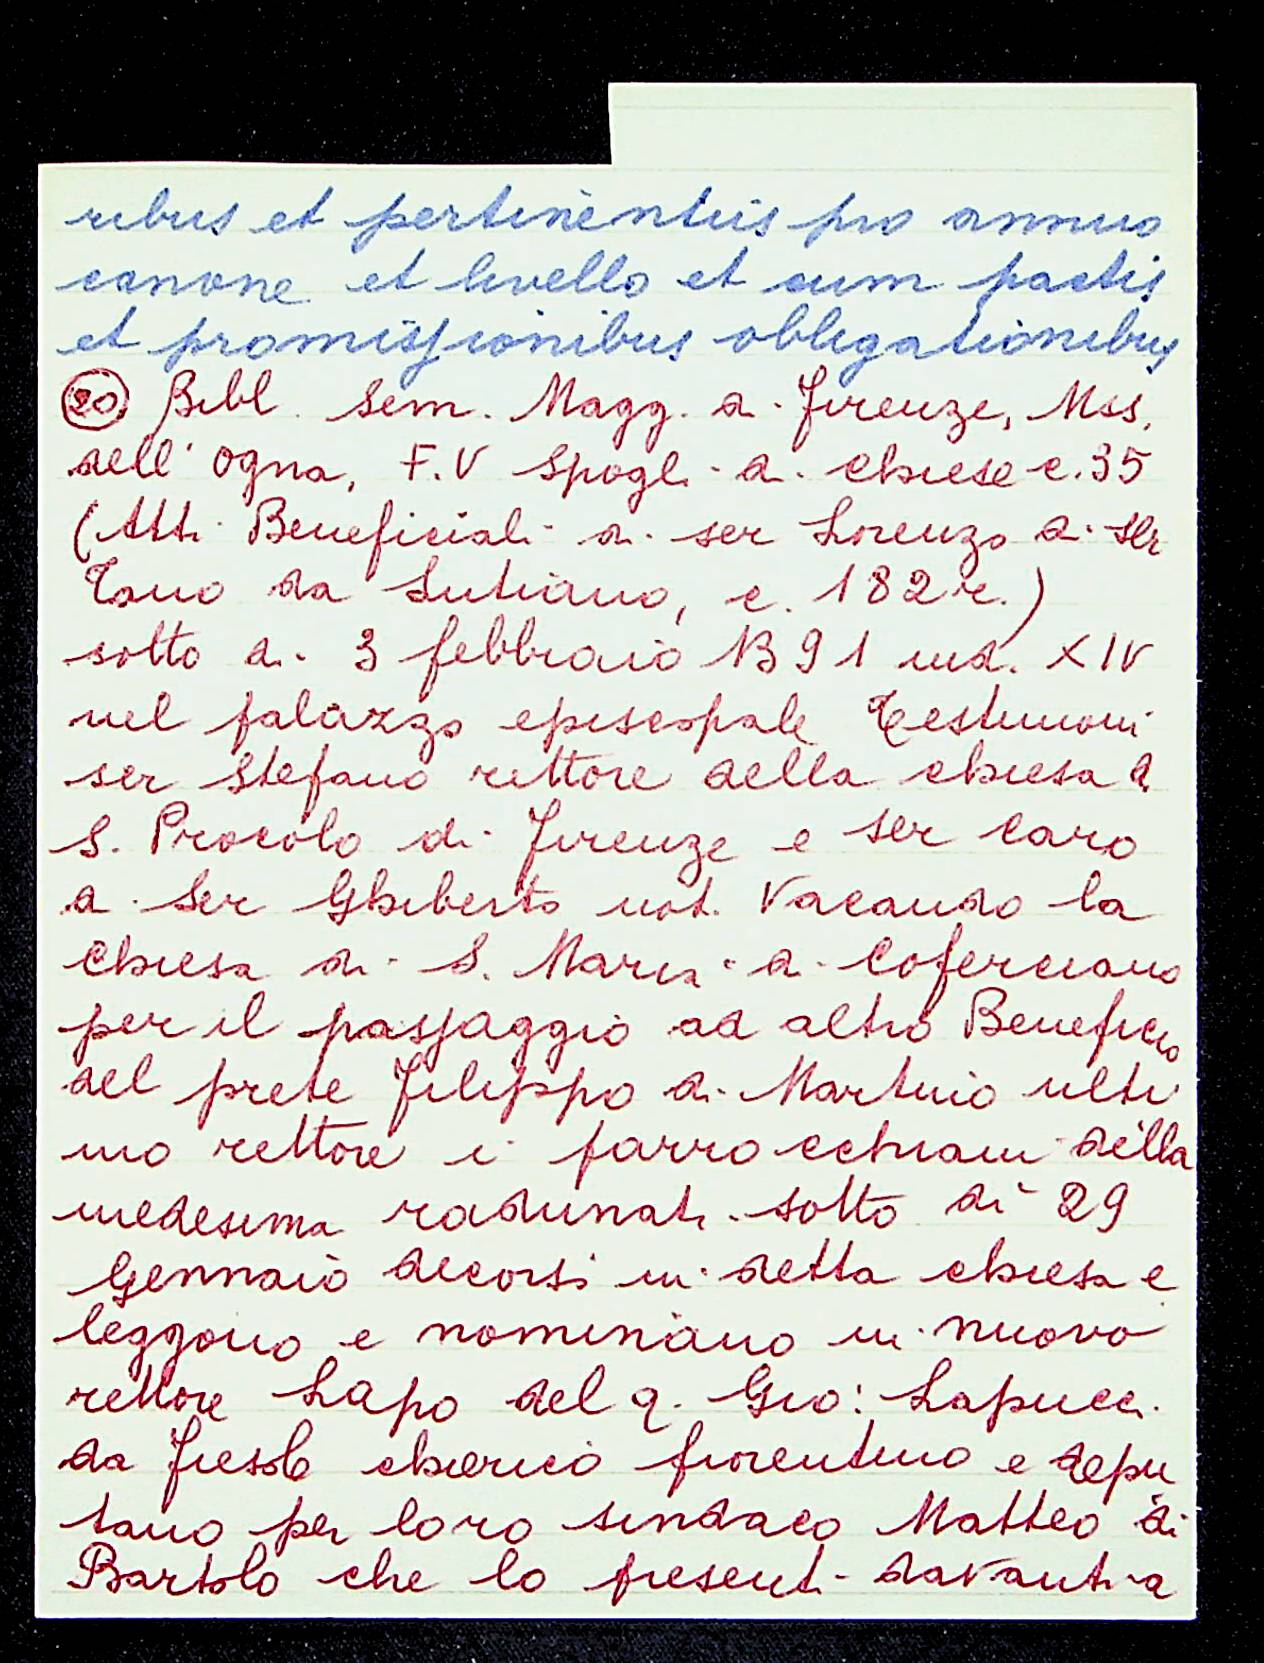 ribus et pertinentiis pro annuo
canone et livello et cum pactis
et promissionibus obligationibus
(20) Bibl. Sem. Magg. di Firenze, Mss.
dell'Ogna, F. V Spogli di chiese c. 35
(Atti Beneficiali di ser Lorenzo di ser
Tano da Lutiano, c. 182 r.)
sotto di 3 febbraio 1391 ind. XIV
nel palazzo episcopale Testimoni
ser Stefano rettore della chiesa di
S. Procolo di Firenze e ser Caro
di Ser Ghiberto not. Vacando la
chiesa di S. Maria a Coferciano
per il passaggio ad altro Beneficio
del prete Filippo di Martino ulti
mo rettore i parrocchiani della
medesima radunati sotto dì 29
Gennaio decorsi in detta chiesa e
leggono e nominano in nuovo
rettore Lapo del q. Gio: Lapucci
da Fiesole chierico fiorentino e depu
tano per loro sindaco Matteo di
Bartolo che lo presenti davanti a